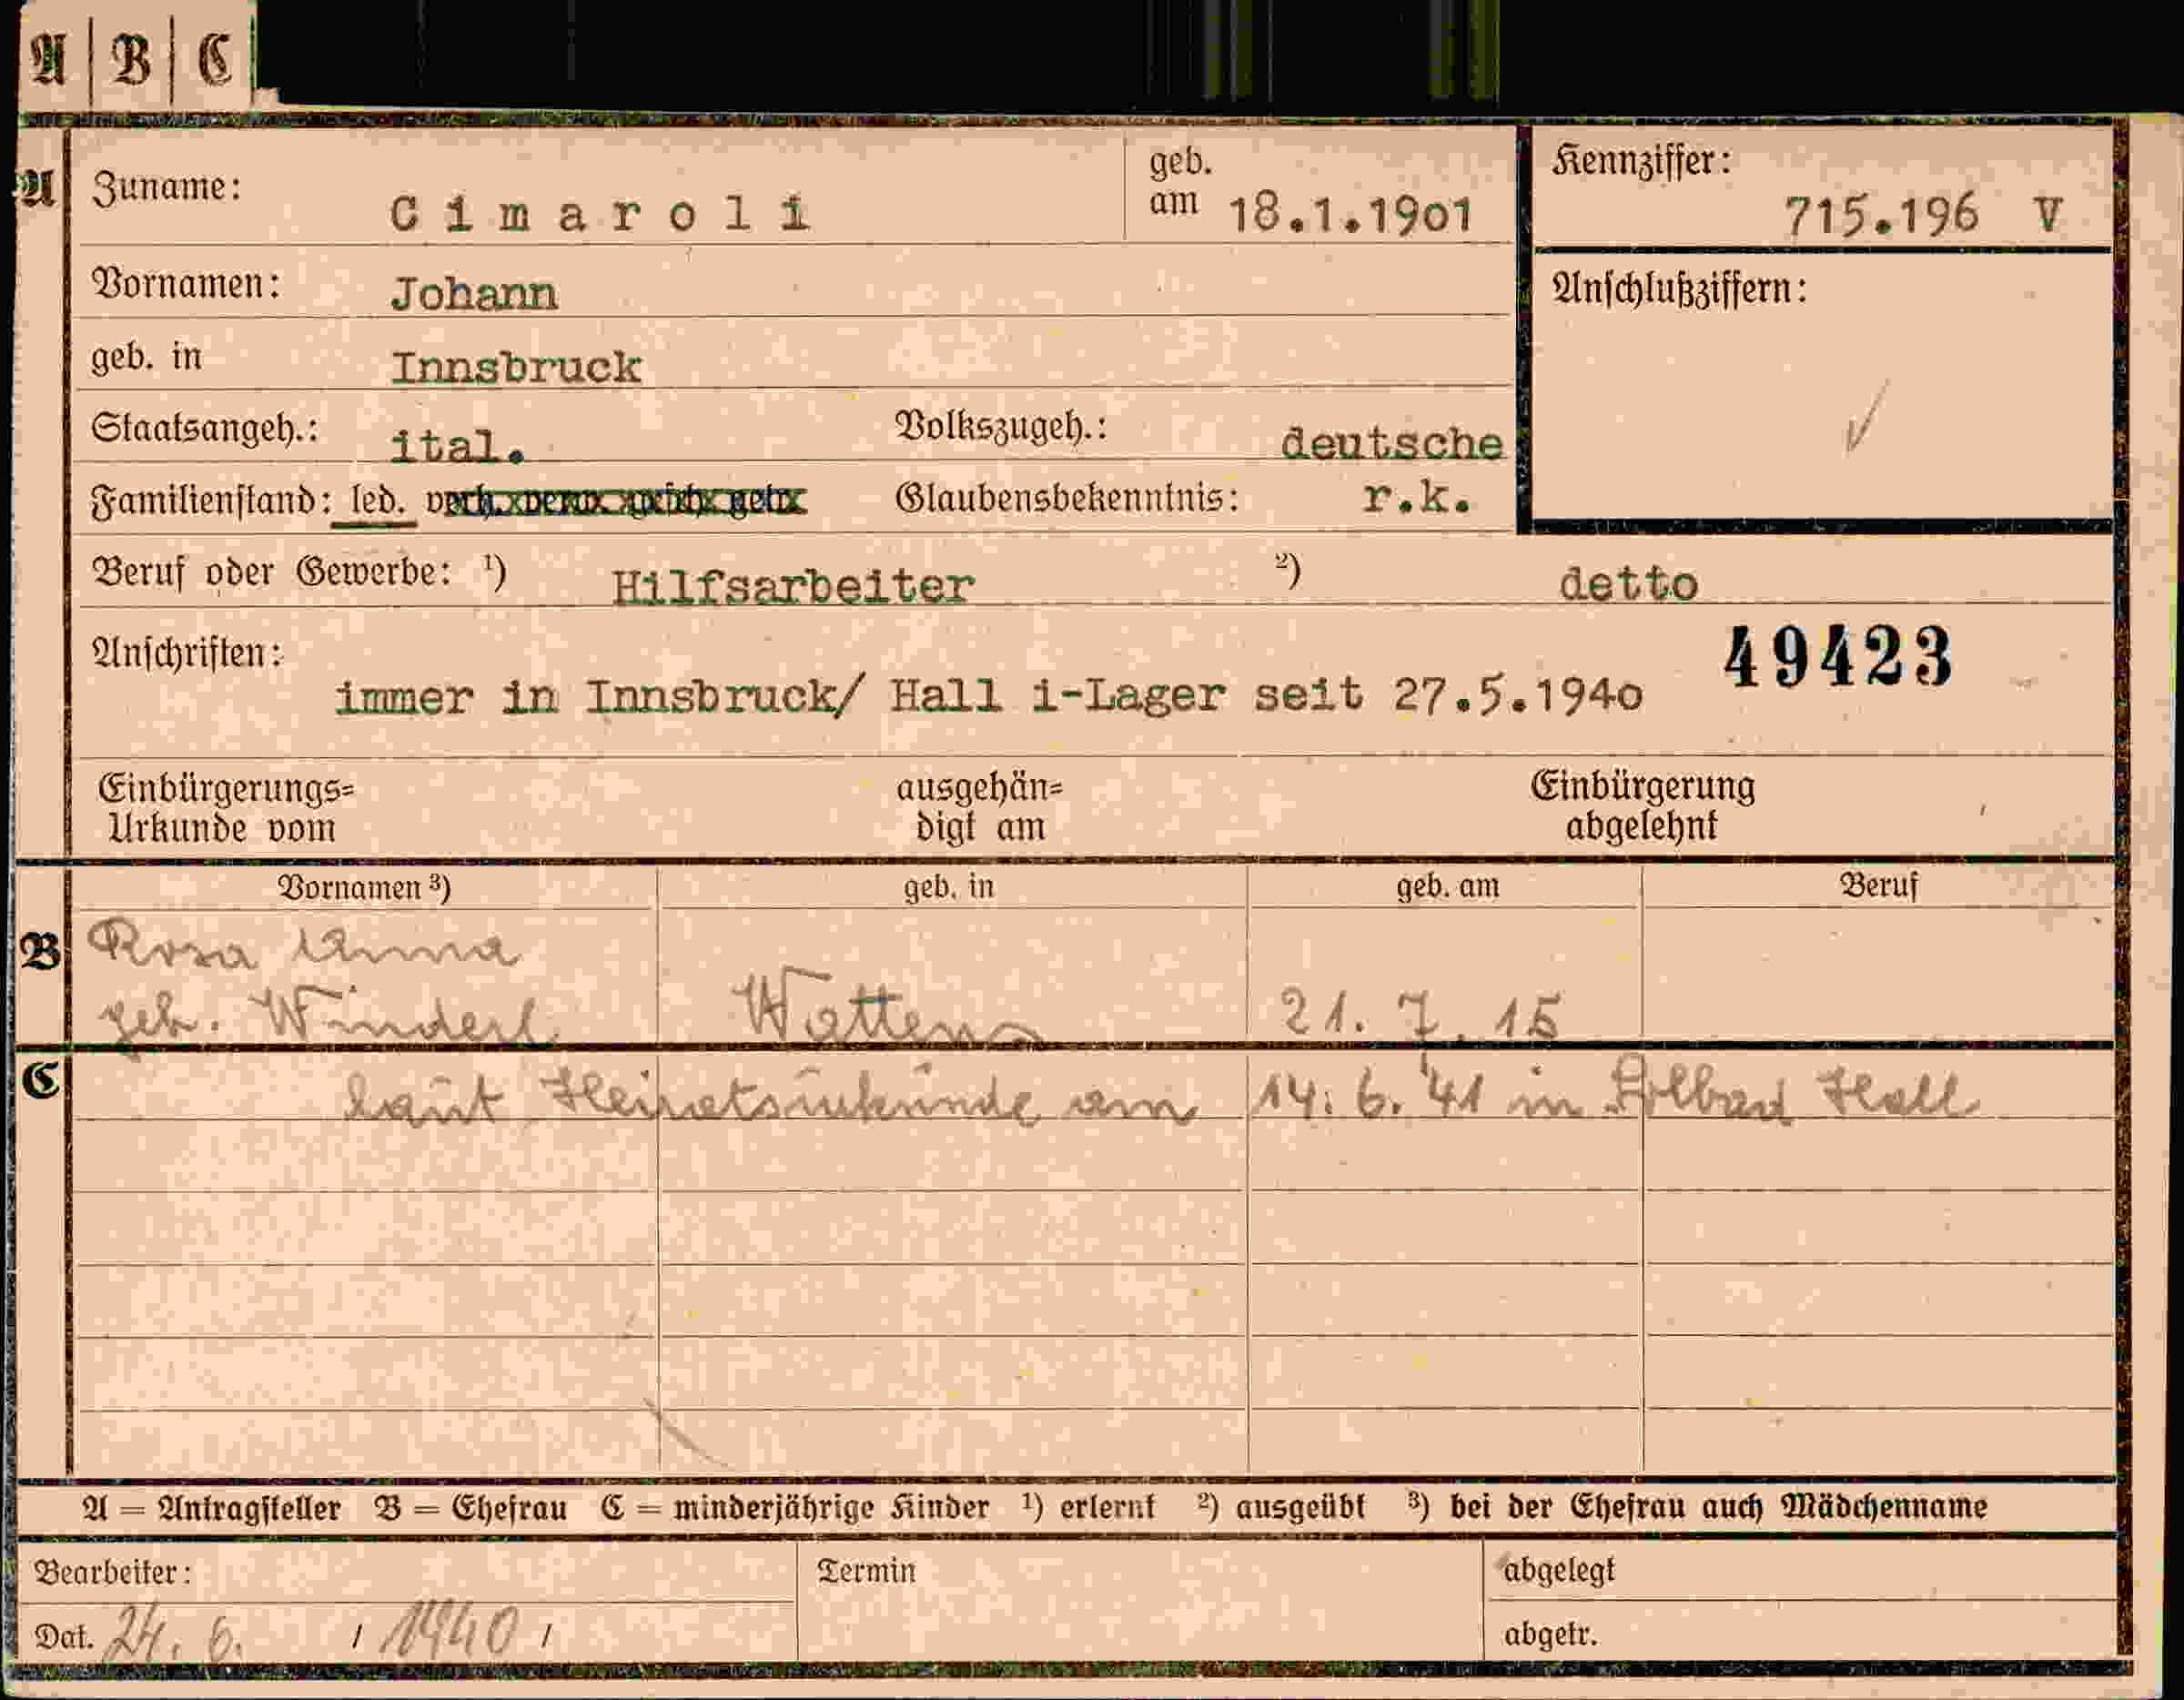 A | B | C
A Zuname: Cimaroli geb. am 18.1.1901 Kennziffer: 715.196 V
Vornamen: Johann Anschlußziffern:
geb. in Innsbruck
Staatsangeh.: ital. Volkszugeh.: deutsche
Familienstand: led. verh. verw. gesch. getr. Glaubensbekenntnis: r.k.
Beruf oder Gewerbe: 1) Hilfsarbeiter 2) detto
Anschriften: 49423
immer in Innsbruck/ Hall i-Lager seit 27.5.1940
Einbürgerungs= ausgehän= Einbürgerung
Urkunde vom digt am abgelehnt
Vornamen 3) geb. in geb. am Beruf
B Rosa Anna
geb. Winderl Wattens 21. 7. 15
C laut Heiratsurkunde am 14. 6. 41 in Solbad Hall
A = Antragsteller B = Ehefrau C = minderjährige Kinder 1) erlernt 2) ausgeübt 3) bei der Ehefrau auch Mädchenname
Bearbeiter: Termin abgelegt
Dat. 24. 6. / 1940 / abgetr.